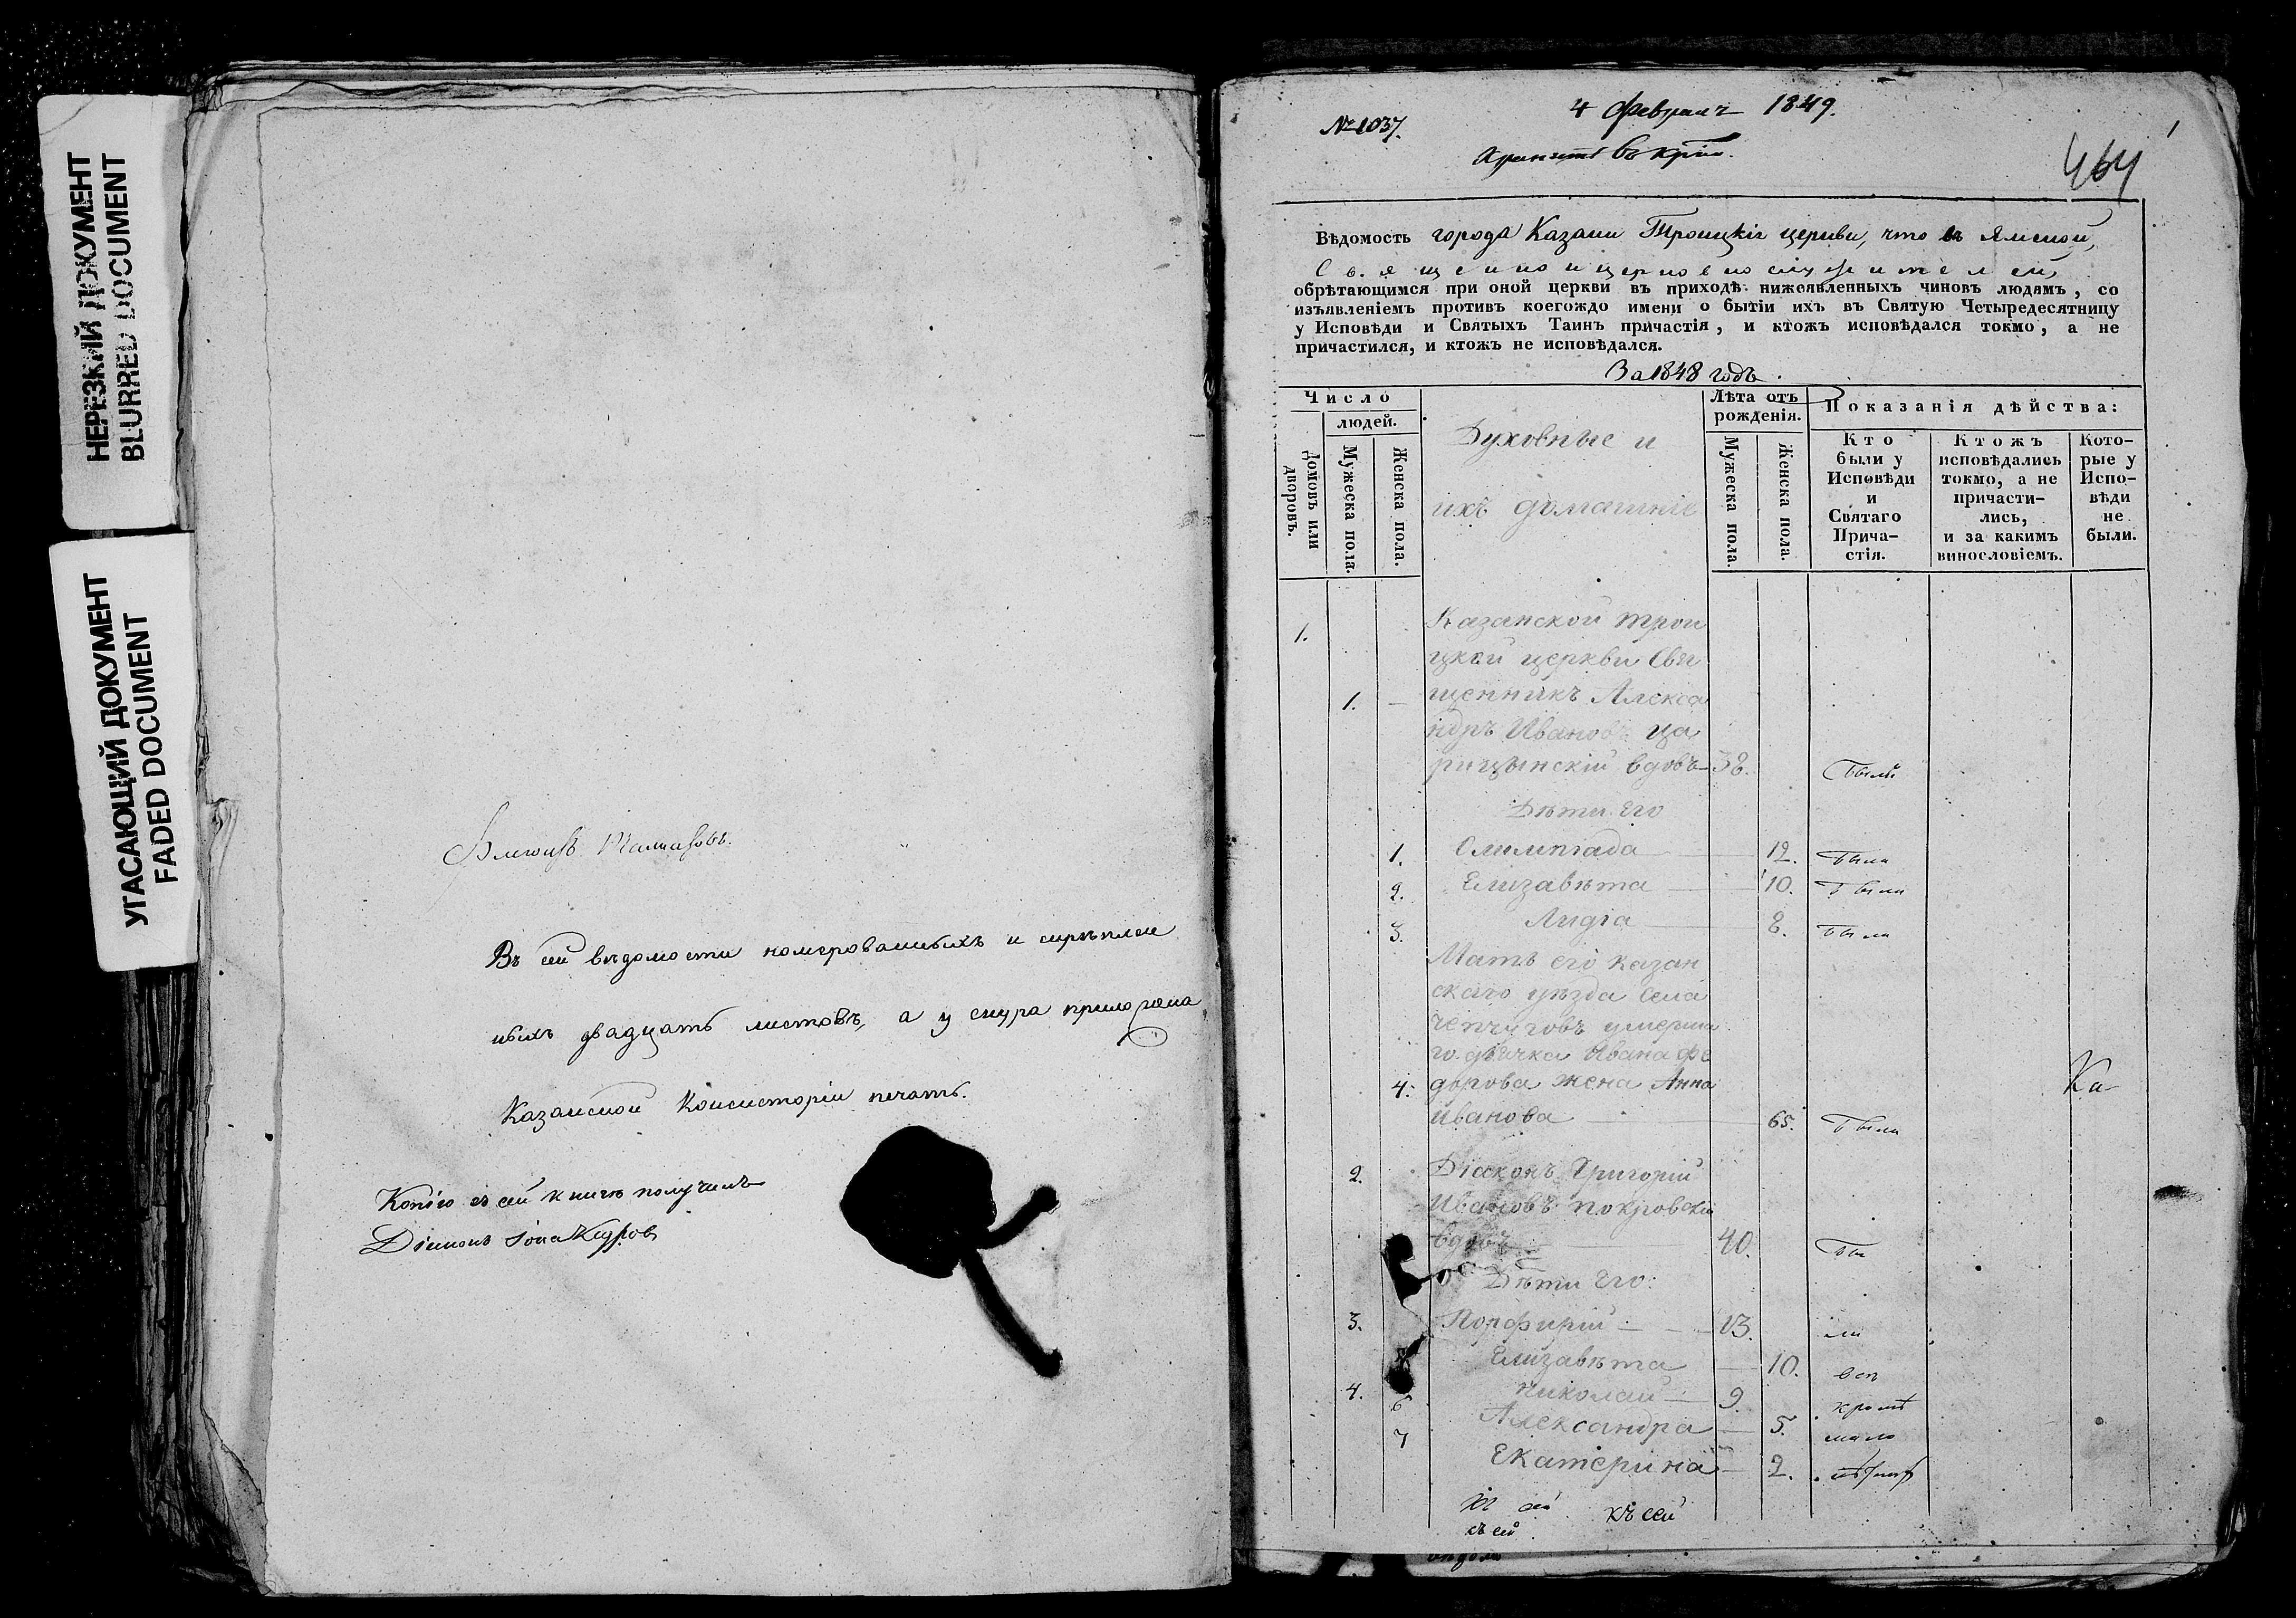 НЕРЕЗКИЙ ДОКУМЕНТ
BLURRED DOCUMENT
УГАСАЮЩИЙ ДОКУМЕНТ
FADED DOCUMENT
Въ сей вѣдомости номерованныхъ и скрѣплен
ныхъ двадцать листовъ, а у снура приложена
Казанской Консисторіи печать.
Копію съ сей книги получилъ
Діаконъ Іона Кедров
№ 1037.
4 Февраля 1849.
464
Вѣдомость города Казани Троицкія церкви, что въ Ямской,
Священноицерковнослужителей,
обрѣтающимся при оной церкви въ приходѣ нижеявленныхъ чиновъ людямъ, со
изъявленіемъ противъ коегождо имени о бытіи ихъ въ Святую Четыредесятницу
у Исповѣди и Святыхъ Таинъ причастія, и ктожъ исповѣдался токмо, а не
причастился, и ктожъ не исповѣдался.
За 1848 годъ.
Число
людей.
Домовъ или дворовъ.
Мужеска пола.
Женска пола.
Духовные и
ихъ домашніе
Лѣта отъ
рожденія.
Мужеска пола.
Женска пола.
Показанія дѣйства:
Кто
были у
Исповѣди
и
Святаго
Прича-
стія.
Ктожъ
исповѣдались
токмо, а не
причасти-
лись,
и за какимъ
винословіемъ.
Кото-
рые у
Испо-
вѣди
не
были.
1. Казанской Трои
цкой церкви Свя
1. — щенникъ Алекса
ндръ Ивановъ Ца
рицынскій вдовъ — 38. былъ
Дѣти его
1. Олимпіада 12. была
2. Елизавѣта 10. была
3. Лидія 8. была
Мать его казан
скаго уѣзда села
Чепчуговъ умерша
го дьячка Ивана Фе
4. дорова жена Анна Ка
Иванова 65. была
2. Діаконъ Григорій
Ивановъ Покровскій
вдовъ 40. бы
Дѣти его:
3. Порфирій 13. ли
Елизавѣта 10. вси
4. Николай 9. кромѣ
6 Александра 5. мало
7 Екатерина 2.
къ сей